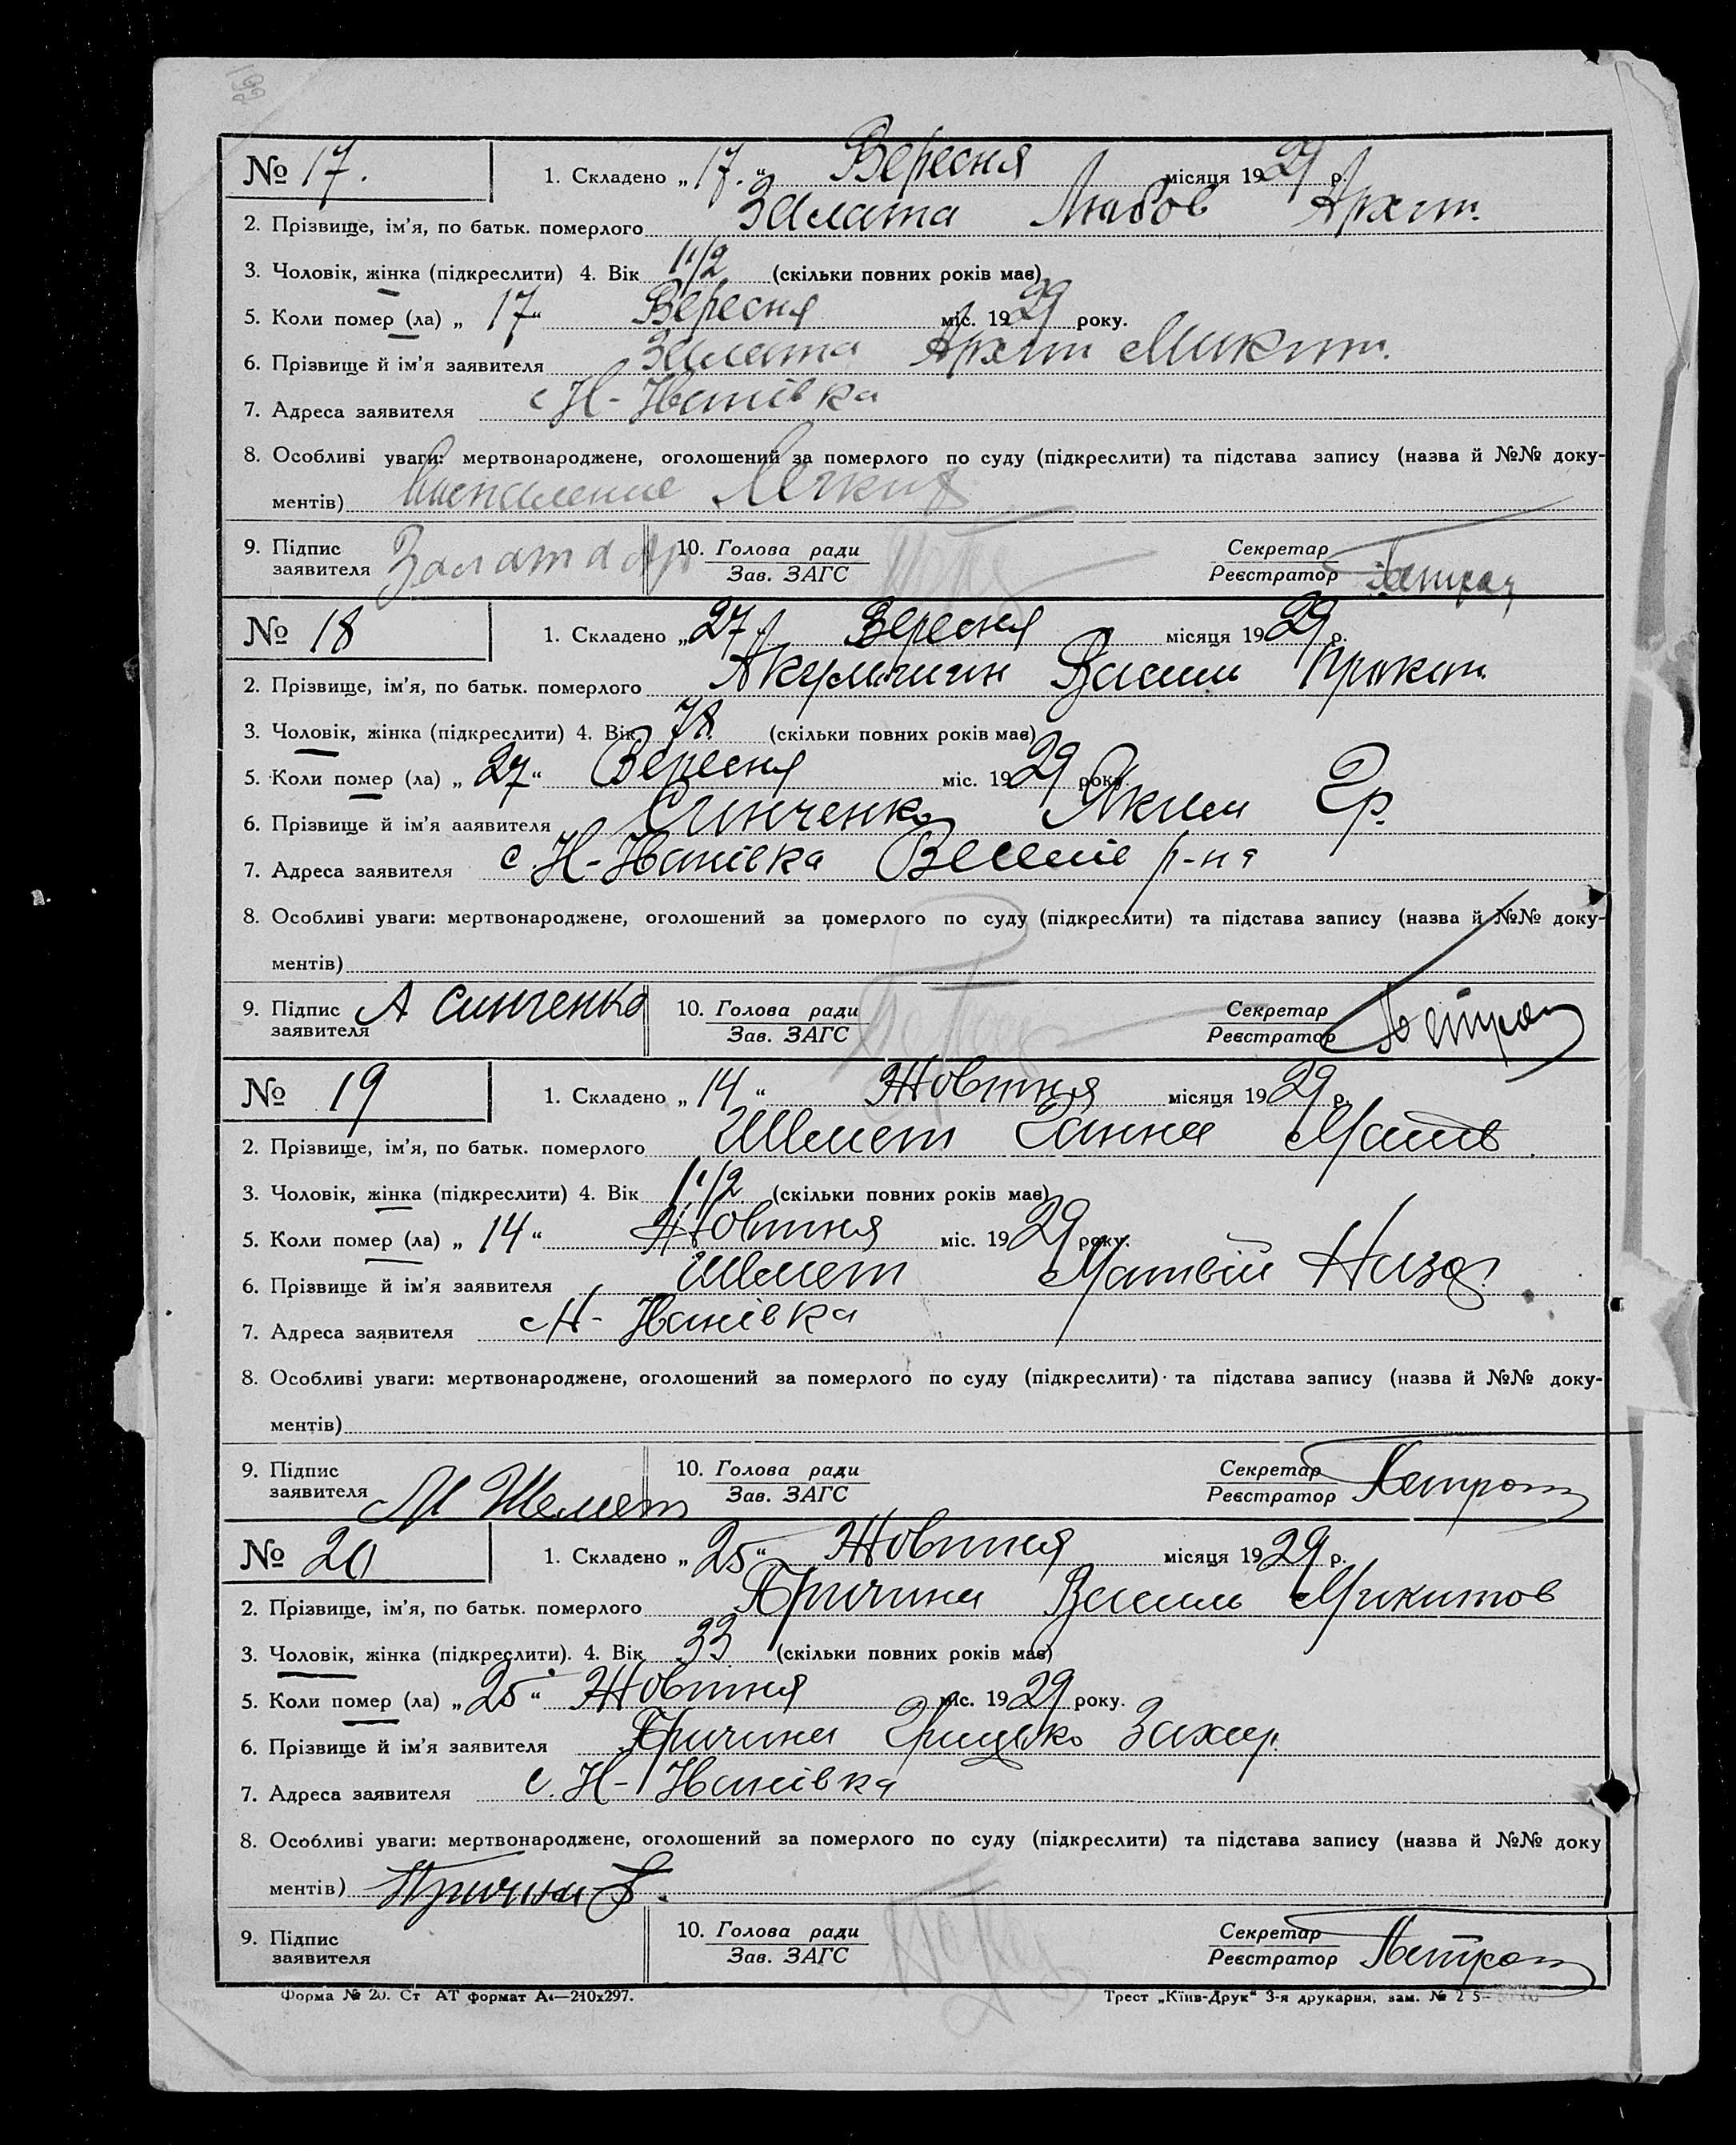 № 17.
1. Складено „17.“ Вересня місяця 1929 р.
2. Прізвище, ім’я, по батьк. померлого Залата Любов Архип.
3. Чоловік, жінка (підкреслити) 4. Вік 1 1/2 (скільки повних років має)
5. Коли помер (ла) „17“ Вересня міс. 1929 року.
6. Прізвище й ім’я заявителя Залата Архип Микит.
7. Адреса заявителя с Н-Іванівка
8. Особливі уваги: мертвонароджене, оголошений за померлого по суду (підкреслити) та підстава запису (назва й №№ доку-
ментів) Воспаление Легких
9. Підпис заявителя Залата Ар
10. Голова ради
Зав. ЗАГС
Секретар
Реєстратор
№ 18
1. Складено „27“ Вересня місяця 1929 р.
2. Прізвище, ім’я, по батьк. померлого Василь Прокоп.
3. Чоловік, жінка (підкреслити) 4. Вік 78. (скільки повних років має)
5. Коли помер (ла) „27“ Вересня міс. 1929 року
6. Прізвище й ім’я ааявителя Синченко Яким Гр.
7. Адреса заявителя с. Н-Іванівка р-на
8. Особливі уваги: мертвонароджене, оголошений за померлого по суду (підкреслити) та підстава запису (назва й №№ доку-
ментів)
9. Підпис заявителя А Синченко
10. Голова ради
Зав. ЗАГС
Секретар
Реєстратор
№ 19
1. Складено „14“ Жовтня місяця 1929 р.
2. Прізвище, ім’я, по батьк. померлого Шемет Ганна Матв.
3. Чоловік, жінка (підкреслити) 4. Вік 1 1/2 (скільки повних років має)
5. Коли помер (ла) „14“ Жовтня міс. 1929 року.
6. Прізвище й ім’я заявителя Шемет Матвій Назар.
7. Адреса заявителя с Н-Іванівка
8. Особливі уваги: мертвонароджене, оголошений за померлого по суду (підкреслити) та підстава запису (назва й №№ доку-
ментів)
9. Підпис заявителя М Шемет
10. Голова ради
Зав. ЗАГС
Секретар
Реєстратор
№ 20
1. Складено „25“ Жовтня місяця 1929 р.
2. Прізвище, ім’я, по батьк. померлого Причина Василь Микитов
3. Чоловік, жінка (підкреслити). 4. Вік 33 (скільки повних років має)
5. Коли помер (ла) „25“ Жовтня міс. 1929 року.
6. Прізвище й ім’я заявителя Причина Грицько Захар.
7. Адреса заявителя с. Н-Іванівка
8. Особливі уваги: мертвонароджене, оголошений за померлого по суду (підкреслити) та підстава запису (назва й №№ доку
ментів) Причина
9. Підпис заявителя
10. Голова ради
Зав. ЗАГС
Секретар
Реєстратор
Форма № 20. Ст АТ формат А4—210х297.
Трест „Київ-Друк“ 3-я друкарня, зам. №